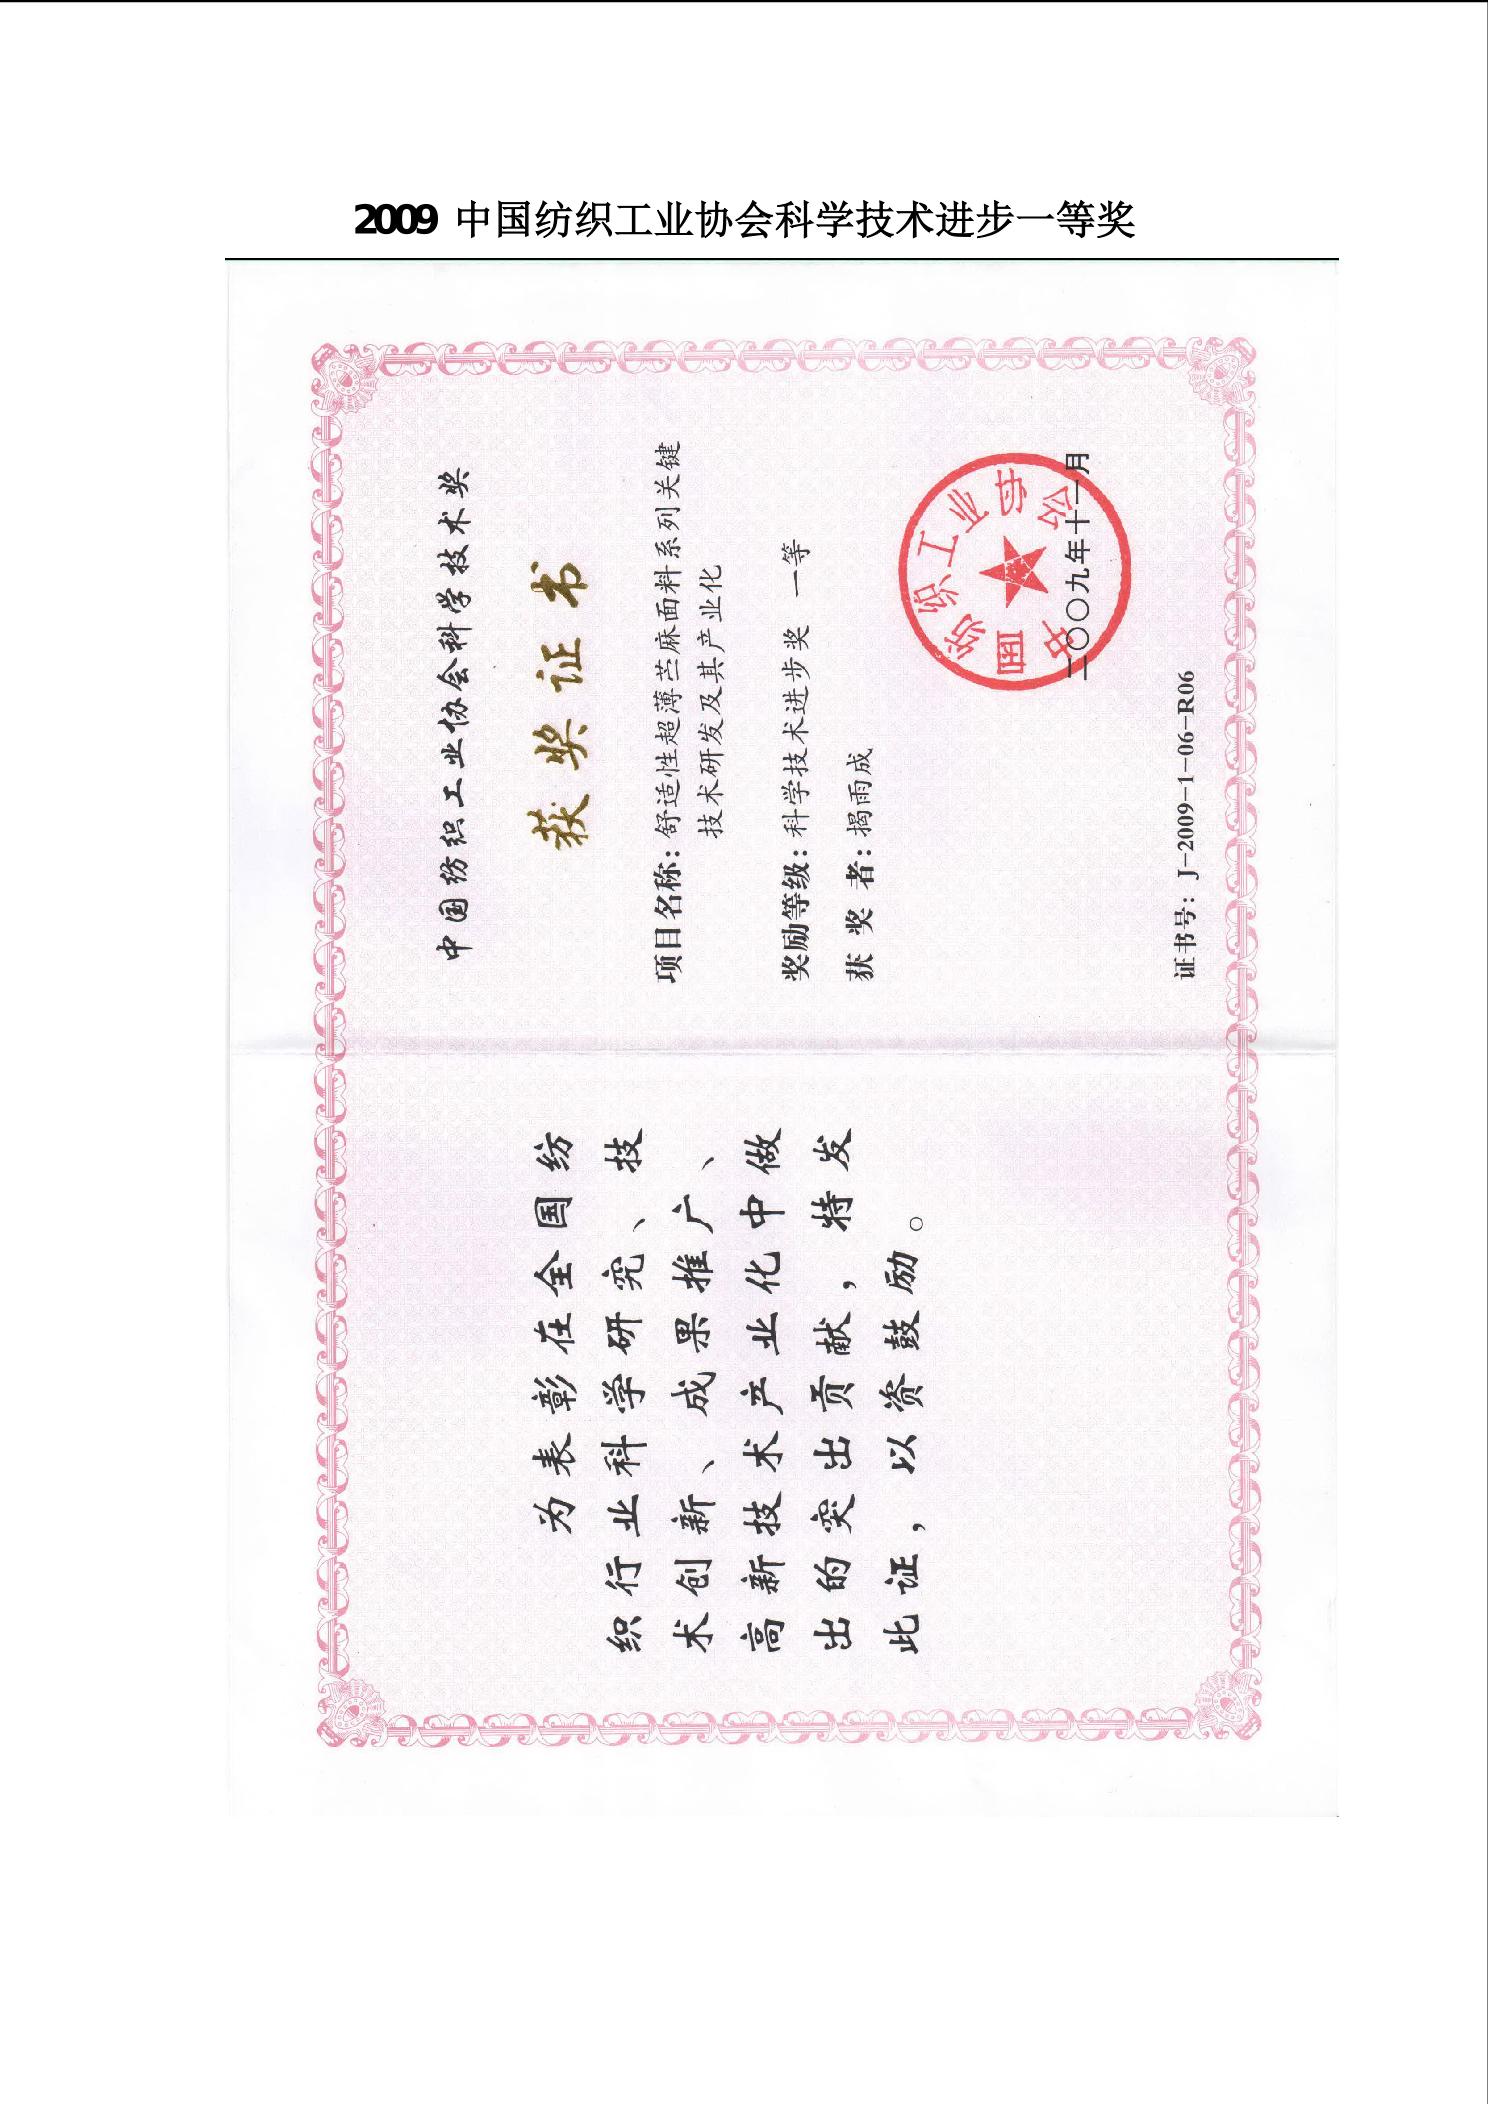 2009 中国纺织工业协会科学技术进步一等奖
为表彰在全国纺
织行业科学研究、技
术创新、成果推广、
高新技术产业化中做
出的突出贡献，特发
此证，以资鼓励。
中国纺织工业协会科学技术奖
获奖证书
项目名称：舒适性超薄苎麻面料系列关键
技术研发及其产业化
奖励等级：科学技术进步奖 一等
获 奖 者：揭雨成
中国纺织工业协会
二〇〇九年十一月
证书号：J-2009-1-06-R06